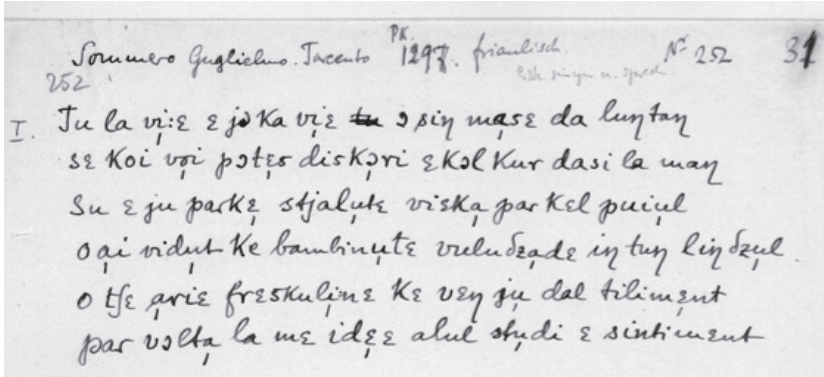 PK.
Sommero Guglielmo. Tarcento 1297. friaulisch. Nr 252 31
252
I. Tu la vi̩:ɛ ɛ jɔ ka vi̩ɛ ɔ siŋ ma̩sɛ da luŋtaŋ
sɛ koi vo̩i pɔtɛ̩s diskɔ̩ri ɛkɔl kur dasi la maŋ
su ɛ ju parkɛ̩ stjalu̩tɛ viɛka̩ par kɛl puiu̩l
o a̩i vidu̩t kɛ bambinu̩tɛ vuluʤa̩dɛ iŋ tuŋ liŋʣu̩l
o tʃɛ a̩riɛ frɛskuli̩nɛ kɛ vɛŋ ju̩ dal tilimɛ̩nt
par vɔlta̩ la mɛ idɛ̩ɛ alul stu̩di ɛ sintimɛnt